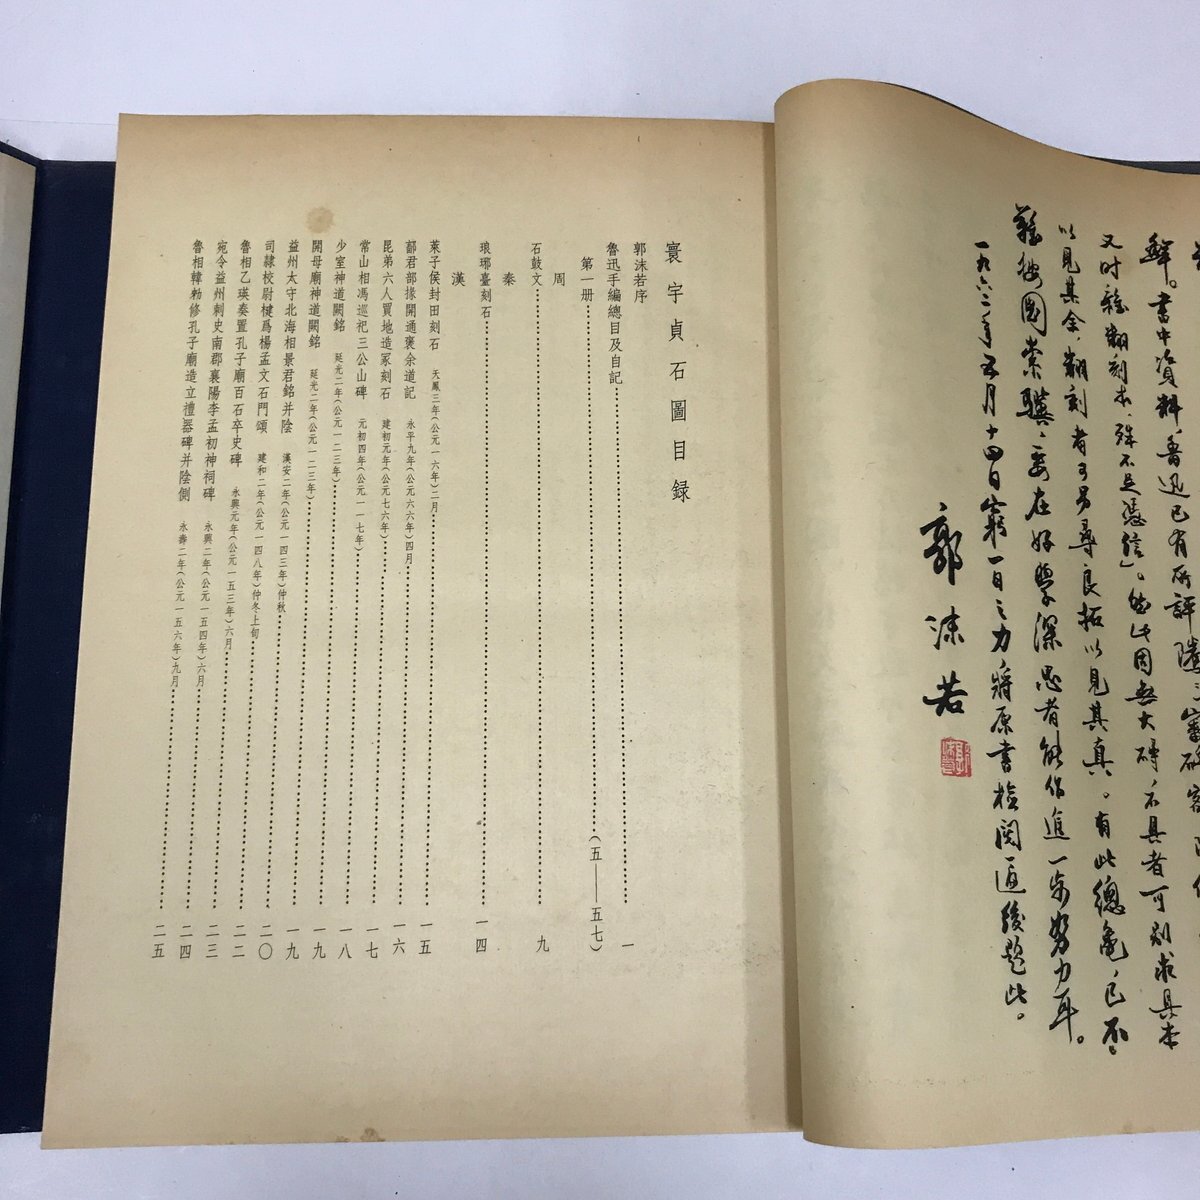 鮮。書中資料,魯迅已有所評隲
又時雜翻刻本,殊不足憑信」。然此固無大碍,不具者可別求具本
以見其全,翻刻者可另尋良拓以見其真。有此總龜,已不
難按圖索驥,要在好學深思者能作進一步努力耳。
一九六二年五月十四日窮一日之力,將原書檢閱一過後題此。
郭沫若
寰宇貞石圖目録
郭沫若序
魯迅手編總目及自記……一
第一册……(五——五七)
周
石鼓文……九
秦
琅琊臺刻石……一四
漢
萊子侯封田刻石 天鳳三年(公元一六年)二月……一五
鄐君部掾開通褒余道記 永平九年(公元六六年)四月……一六
昆弟六人買地造冢刻石 建初元年(公元七六年)……一七
常山相馮巡祀三公山碑 元初四年(公元一一七年)……一八
少室神道闕銘 延光二年(公元一二三年)……一九
開母廟神道闕銘 延光二年(公元一二三年)……一九
益州太守北海相景君銘并陰 漢安二年(公元一四三年)仲秋……二〇
司隷校尉楗爲楊孟文石門頌 建和二年(公元一四八年)仲冬上旬……二二
魯相乙瑛奏置孔子廟百石卒史碑 永興元年(公元一五三年)六月……二三
宛令益州刺史南郡襄陽李孟初神祠碑 永興二年(公元一五四年)六月……二四
魯相韓勑修孔子廟造立禮器碑并陰側 永壽二年(公元一五六年)九月……二五